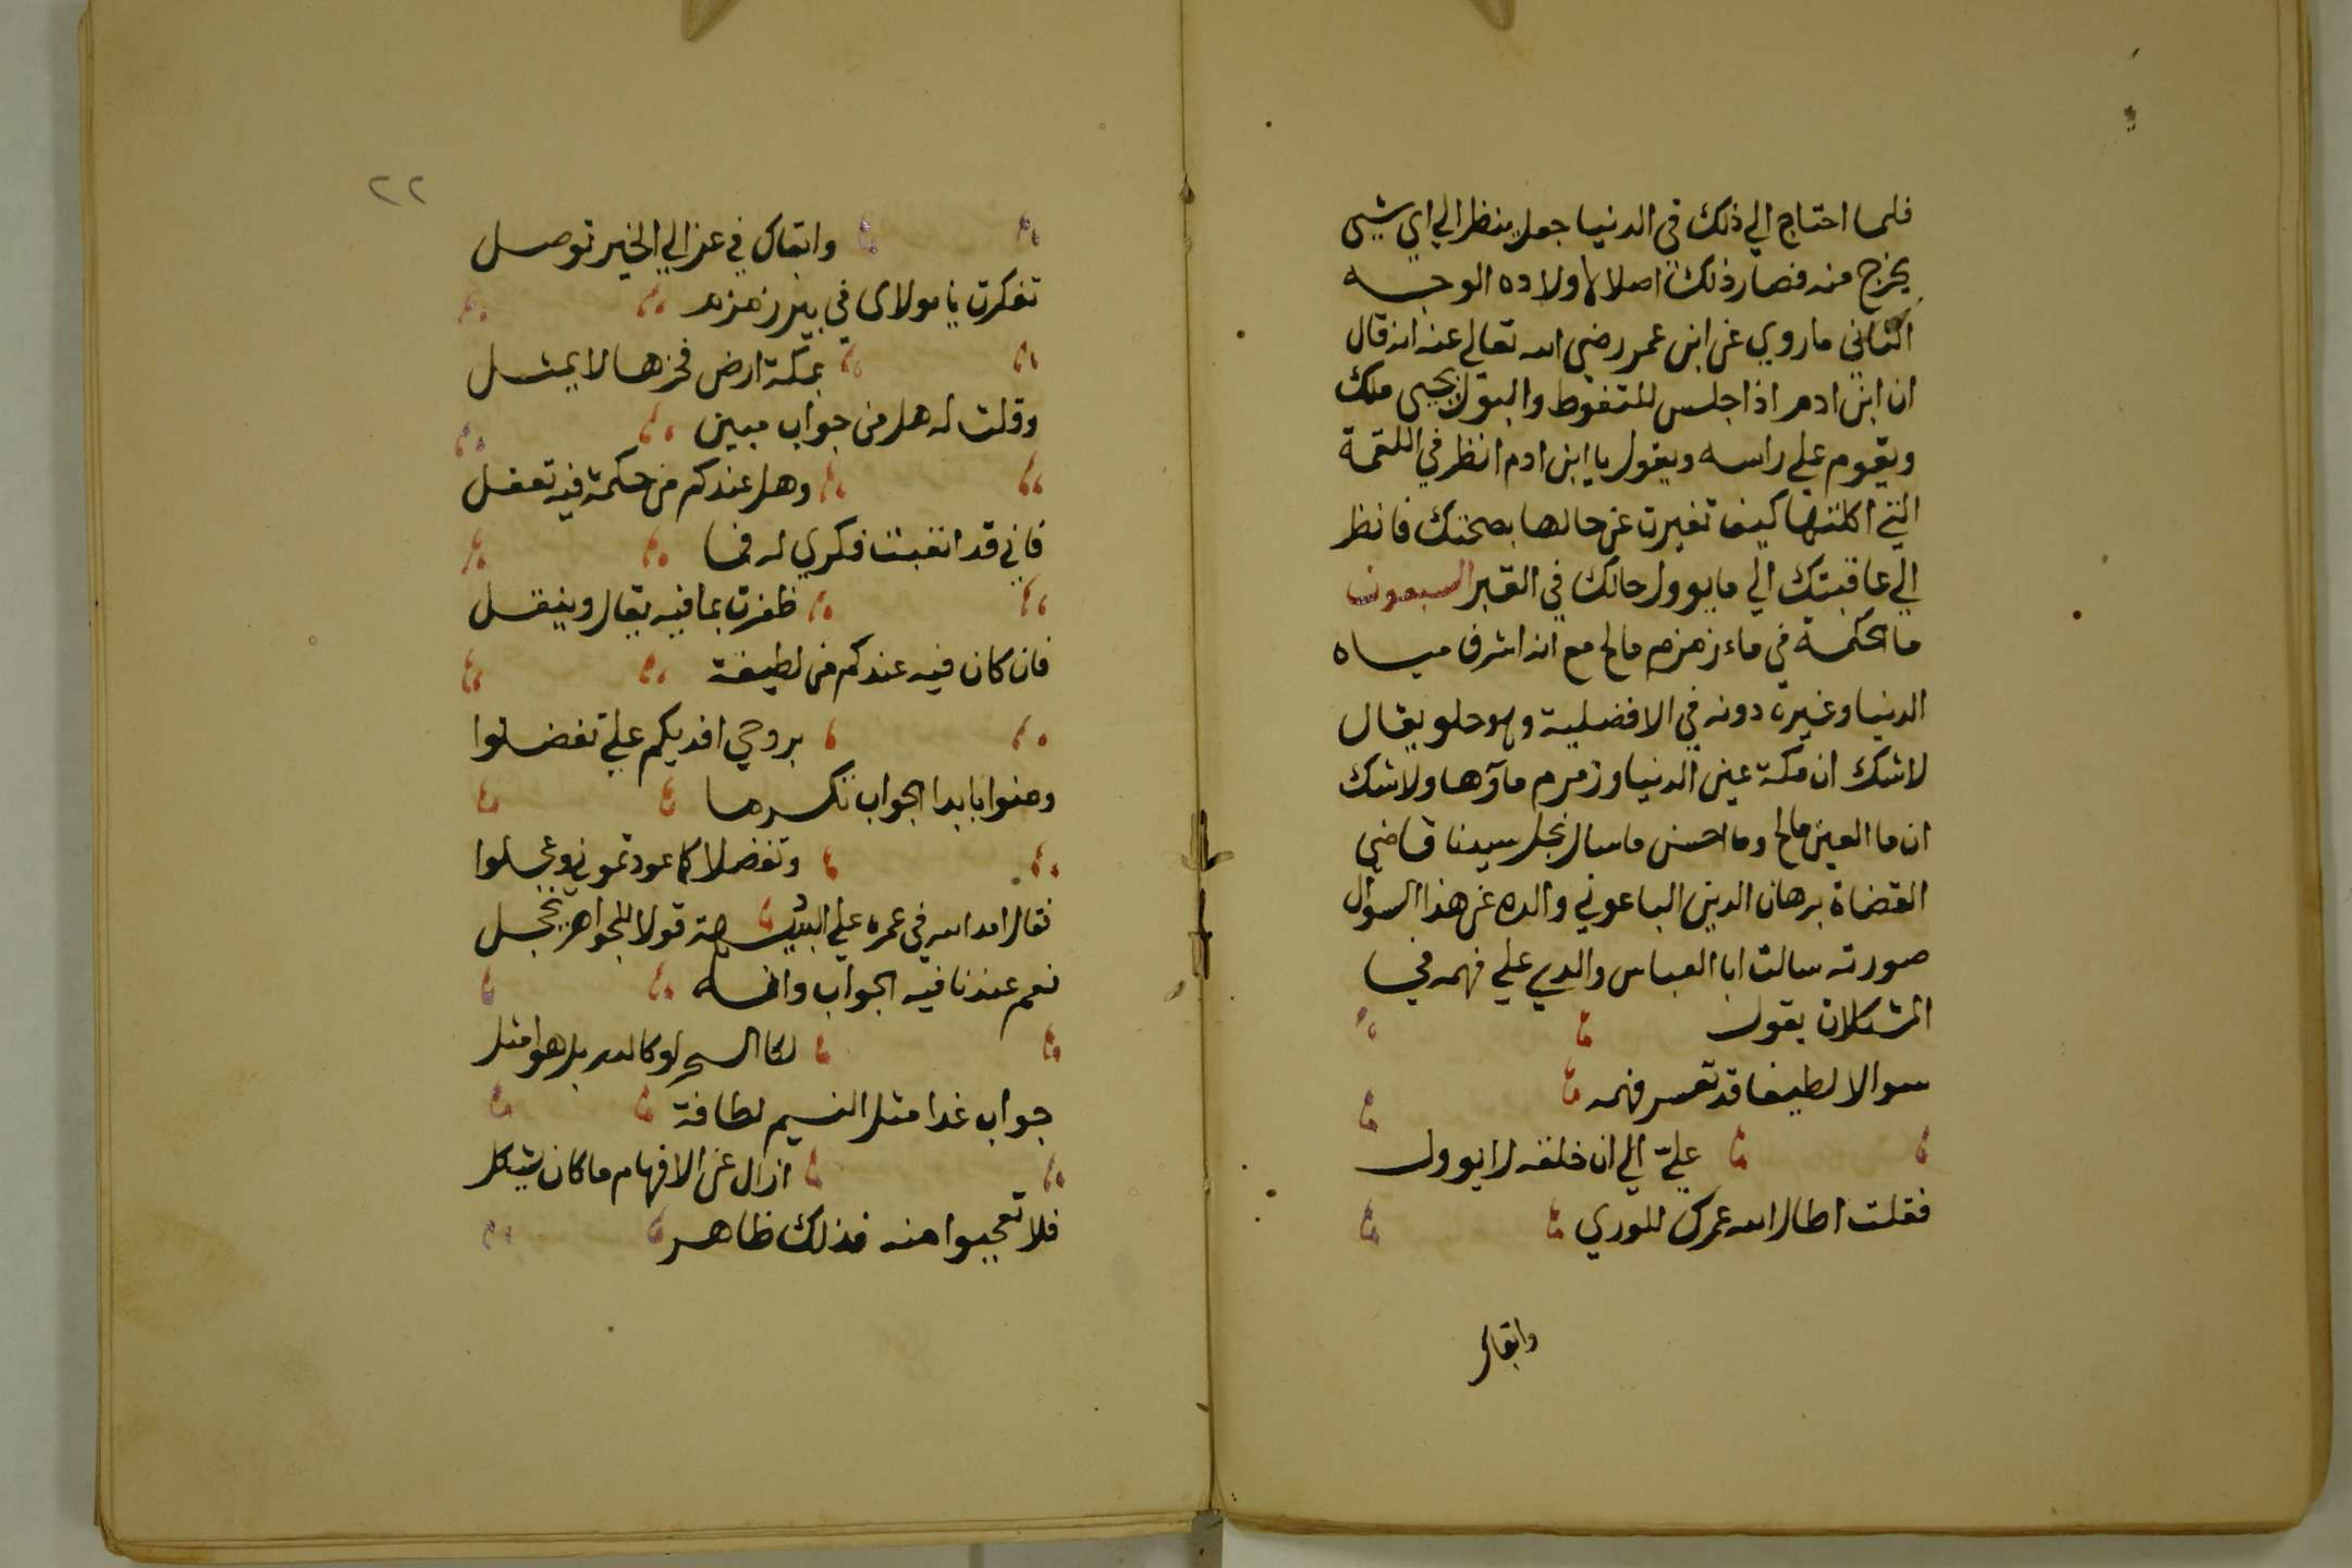 فلما احتاج الي ذلك في الدنيا جعل ينظر الي اي شيى
يخرج منه فصار ذلك اصلا لاولاده الوجه
الثاني ماروي عن ابن عمر رضي الله تعالي عنه انه قال
ان ابن ادم اذا جلس للتغوط والبول يجى ملك
ويقوم علي راسه ويقول يا ابن ادم انظر في اللقمة
التي اكلتها كيف تغيرت عن حالها بصحتك فانظر
الي عاقبتك الي مايوول حالك في القبر السبعون
ما الحكمة في ماء زمزم مالح مع انه اشرف مياه
الدنيا وغيره دونه في الافضلية وهو حلو يقال
لاشك ان مكة عين الدنيا وزمزم ماؤها ولاشك
ان ما العين مالح وما احسن ماسال نجل سيدنا قاضي
القضاة برهان الدين الباعوني والده عن هذا السوال
صورته سالت ابا العباس والدي علي فهمه في
المشكلات يقول
سوالا لطيفا قد تعسر فهمه
عليّ الي ان خلته لا يوول
فقلت اطال الله عمرك للوري
وابقاك
٢٢
وابقاك في عز الي الخير توصل
تفكرت يا مولاى في بير زمزم
بمكة ارض فخرها لا يمثل
وقلت له هل من جواب مبين
وهل عندكم من حكمة فيه تعقل
فاني قد اتعبت فكري له فما
ظفرت بما فيه يقال وينقل
فان كان فيه عندكم من لطيفة
بروحي افديكم علي تفضلوا
ومنوا بابدا الجواب تكرما
وتفضلا كما عودتموني وعجلوا
فقال امد الله في عمره علي قولا للجواهر يخجل
نعم عندنا فيه الجواب وانه
جواب غدا مثل النسيم لطافة
ازال عن الافهام ما كان يشكل
فلا تعجبوا منه فذلك ظاهر